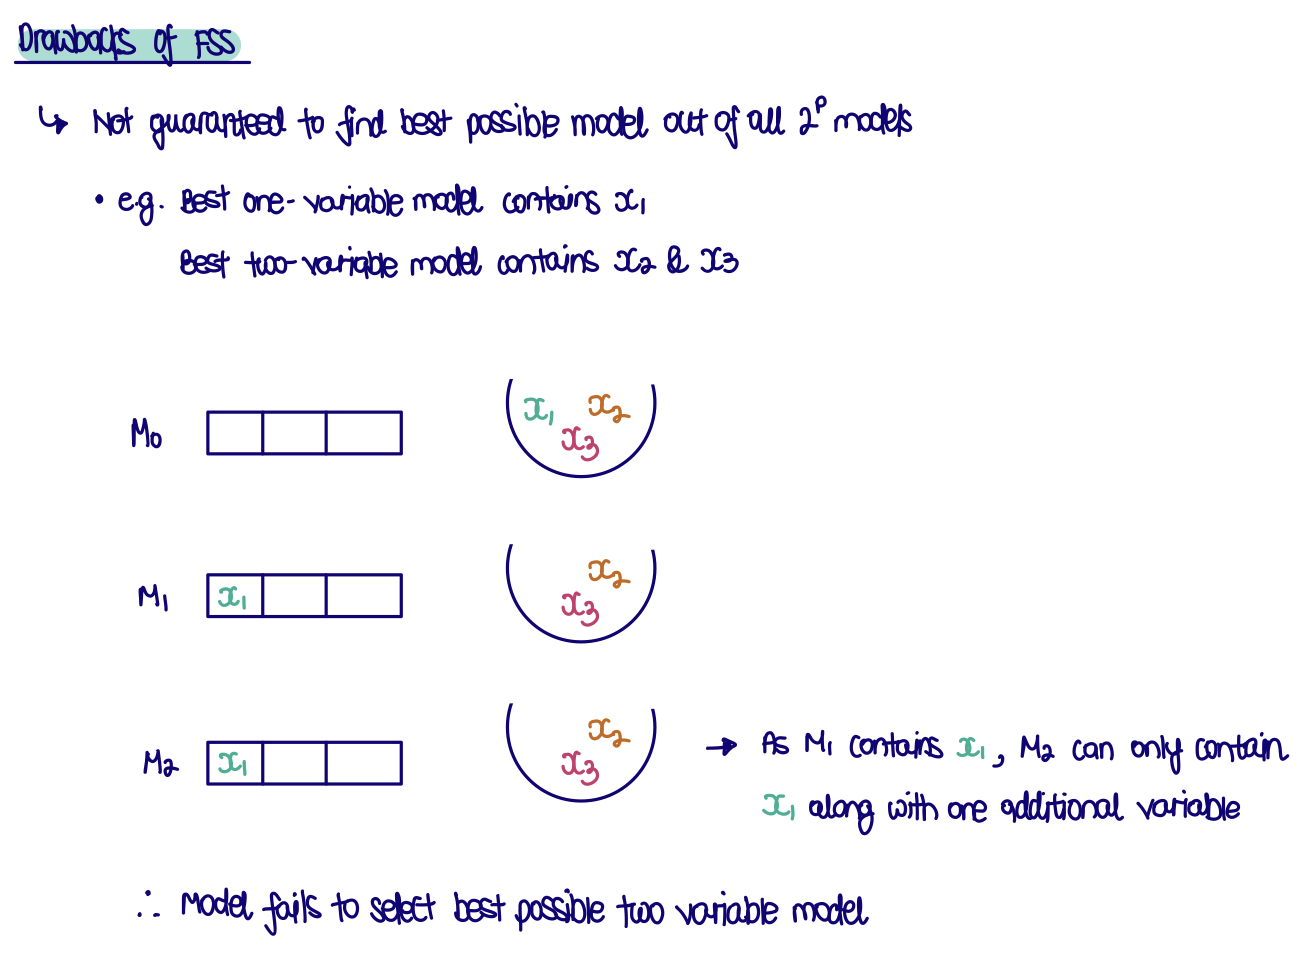 Drawbacks of FSS
↳ Not guaranteed to find best possible model out of all 2ᵖ models
• e.g. Best one-variable model contains x₁
Best two-variable model contains x₂ & x₃
M₀
x₁ x₂
x₃
M₁ x₁
x₂
x₃
M₂ x₁
x₂
x₃
→ As M₁ contains x₁, M₂ can only contain
x₁ along with one additional variable
∴ Model fails to select best possible two variable model